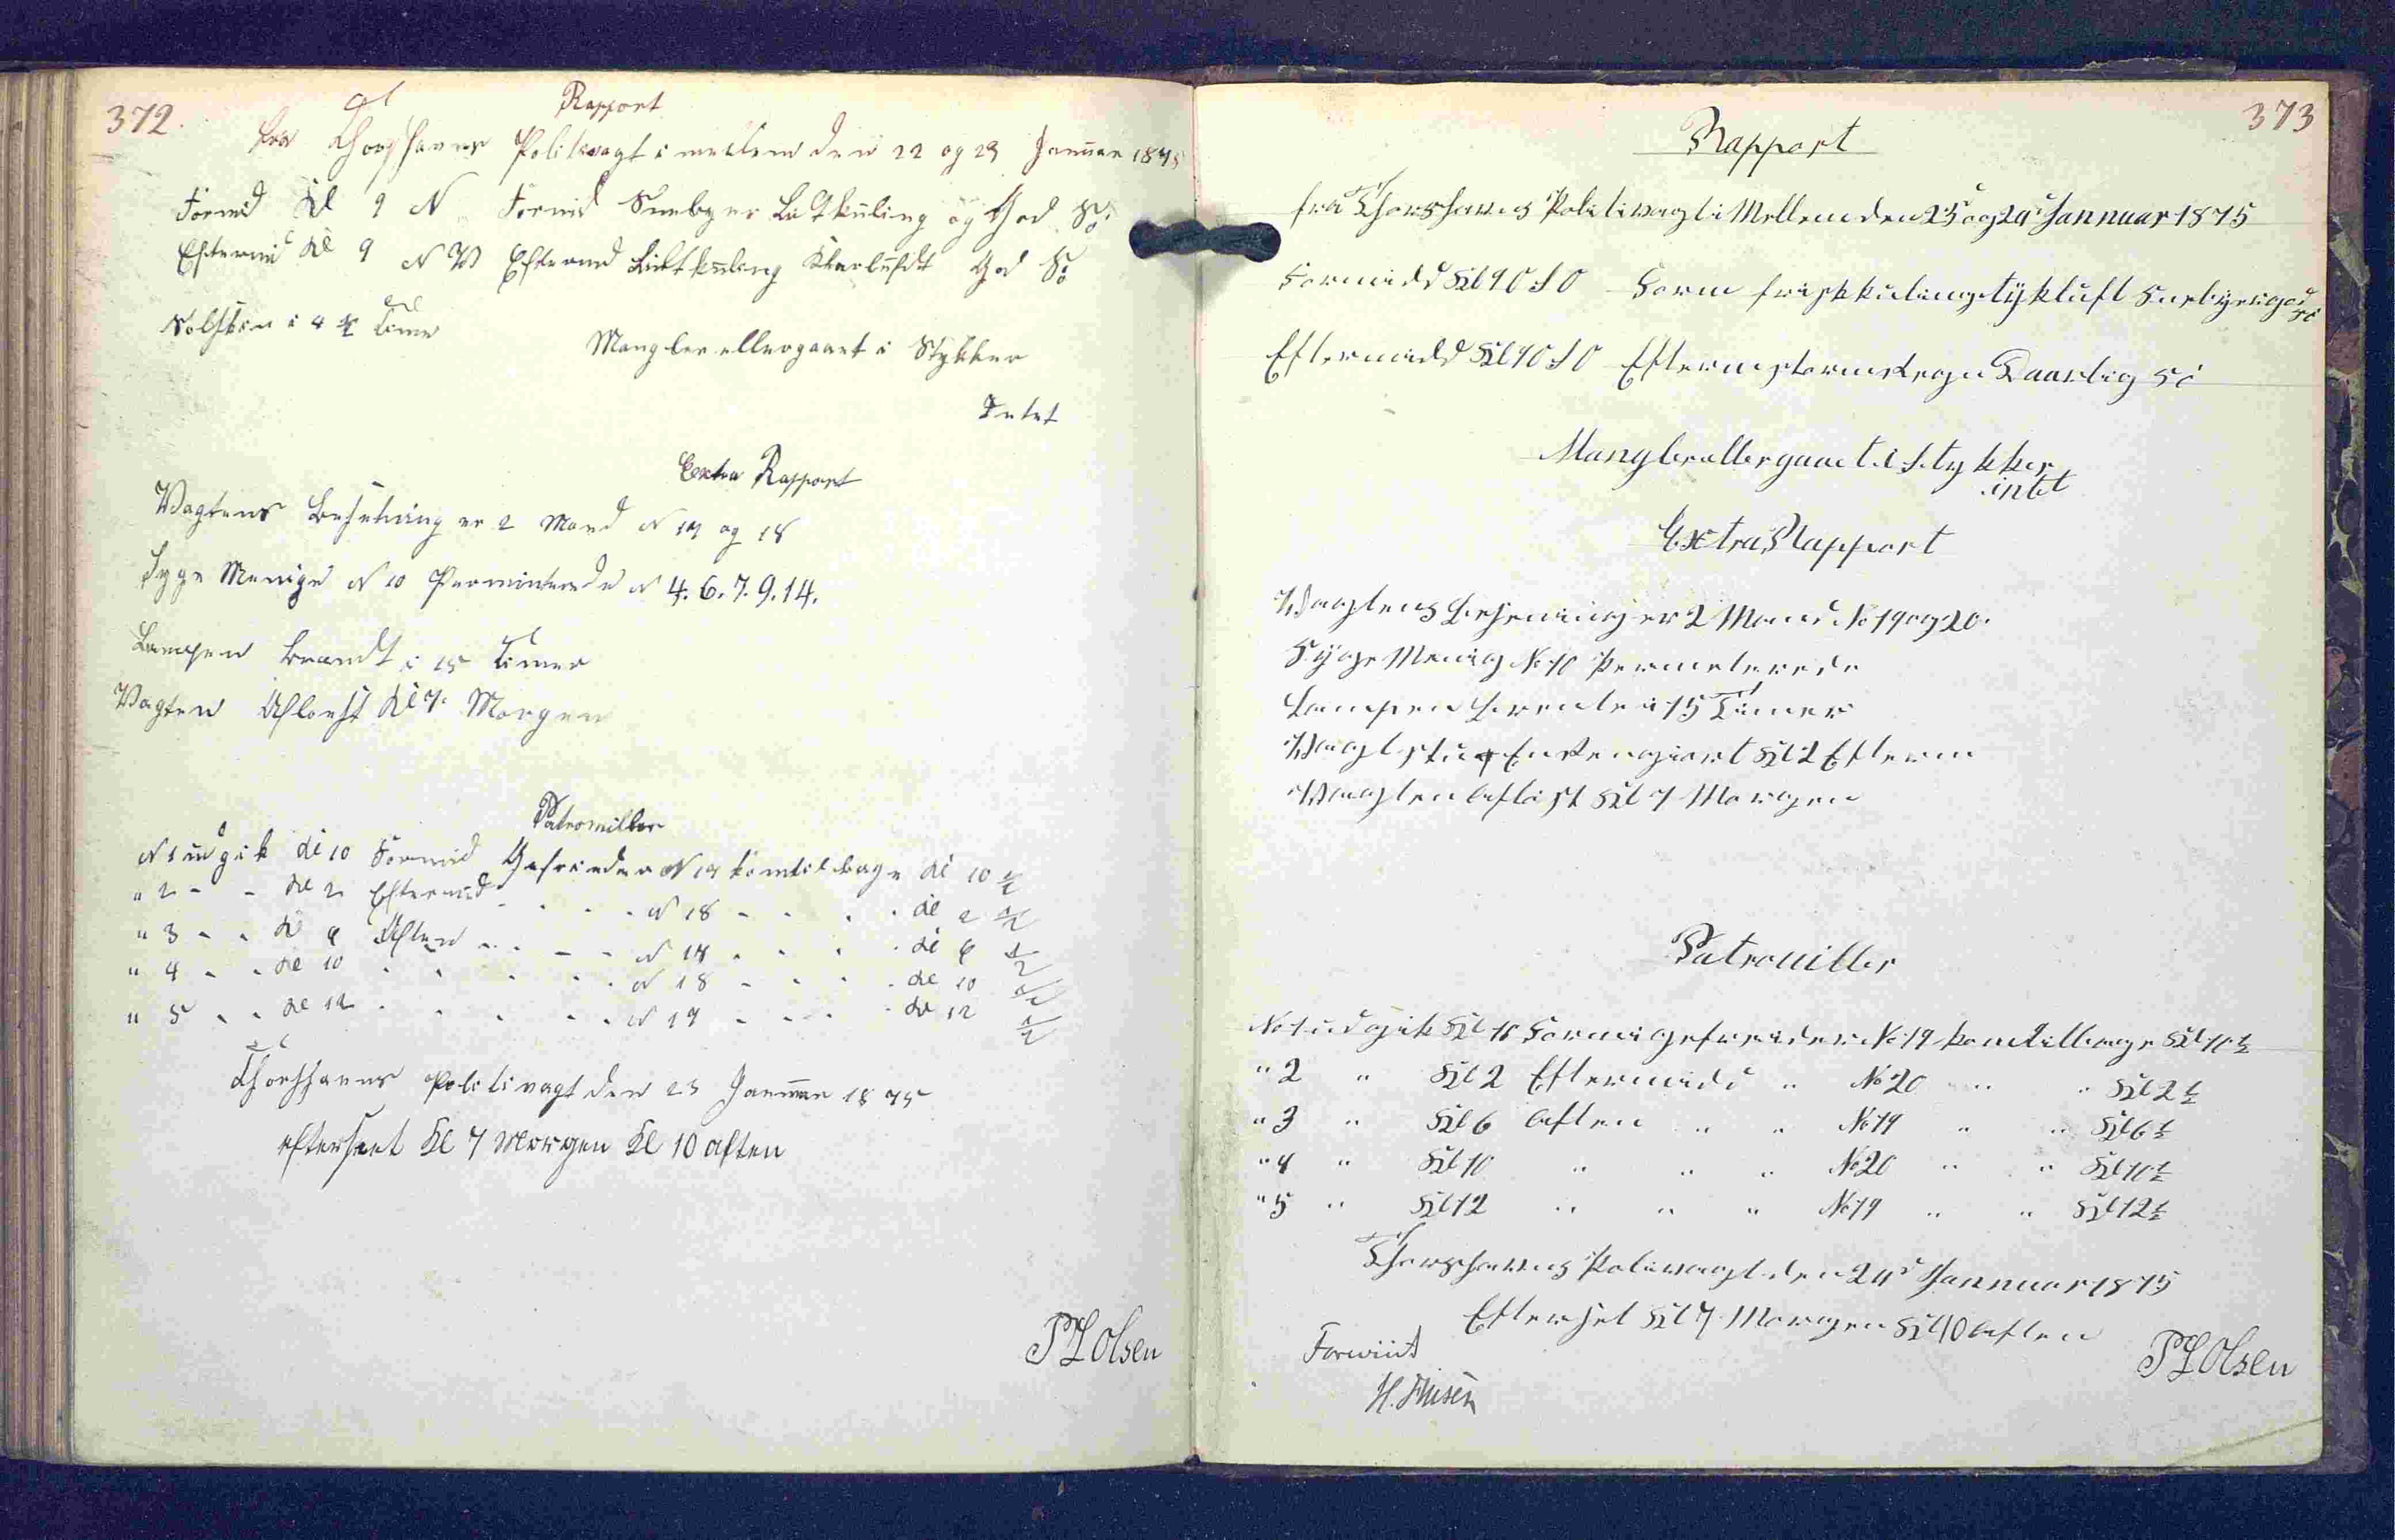 372.
Rapport
fra Thorshavns Politivagt i mellem den 22 og 23 Januar 1875
Formid Kl 9 N Formid Snebyer Lidtkuling og God Sö
Eftermid Kl 9 N W Eftermd Lidtkuling Klarluft God Sö
Solskin i 4 ½ Time
Mangler ellergaaet i Stykker
Intet
Extra Rapport
Vagtens Besetning er 2 Mand N 17 og 18
Syge Menige N 10 Permiterede N 4. 6. 7. 9. 14.
Lampen brændt i 15 Timer
Vagten Aflöst Kl 7. Morgen
Patrouiller
N 1 udgik Kl 10 Formid Gefreider N 17 komtilbage Kl 10 ½
" 2 - - Kl 2 Eftermid - - - N 18 - - - Kl 2 ½
" 3 - - Kl 6 Aften - - - N 17 - - - Kl 6 ½
" 4 - - Kl 10 - - - N 18 - - - Kl 10 ½
" 5 - - Kl 12 - - - N 17 - - - Kl 12 ½
Thorshavns Politivagt den 23 Januar 1875
efterseet Kl 7 Morgen Kl 10 aften
P L Olsen
373
Rapport
fra Thorshavns Politivagt i Mellem den 23 og 24 Jannuar 1875
Formidd Kl 9 O S O Form friskkuling tykluft Snebyer god Sö
Eftermidd Kl 9 O S O Efterm storm Regn Daarlig Sö
Mangler ellergaaet i Stykker
intet
Extra Rapport
Vagtens besetning er 2 Mand No 19 og 20.
Syge Menig No 10 Permeterede
Lampen brente i 15 Timer
Vagtstuen Rengiort Kl 2 Efterm
Vagten aflöst Kl 7 Morgen
Patrouiller
No 1 udgik Kl 10 Formi gefreider No 19 komtilbage Kl 10 ½
" 2 " Kl 2 Eftermidd " No 20 " " Kl 2 ½
" 3 " Kl 6 aften " " No 19 " " Kl 6 ½
" 4 " Kl 10 " " " No 20 " " Kl 10 ½
" 5 " Kl 12 " " " No 19 " " Kl 12 ½
Thorshavns Polivagt den 24 Jannuar 1875
Efterset Kl 7 Morgen Kl 10 aften
P L Olsen
Forviist